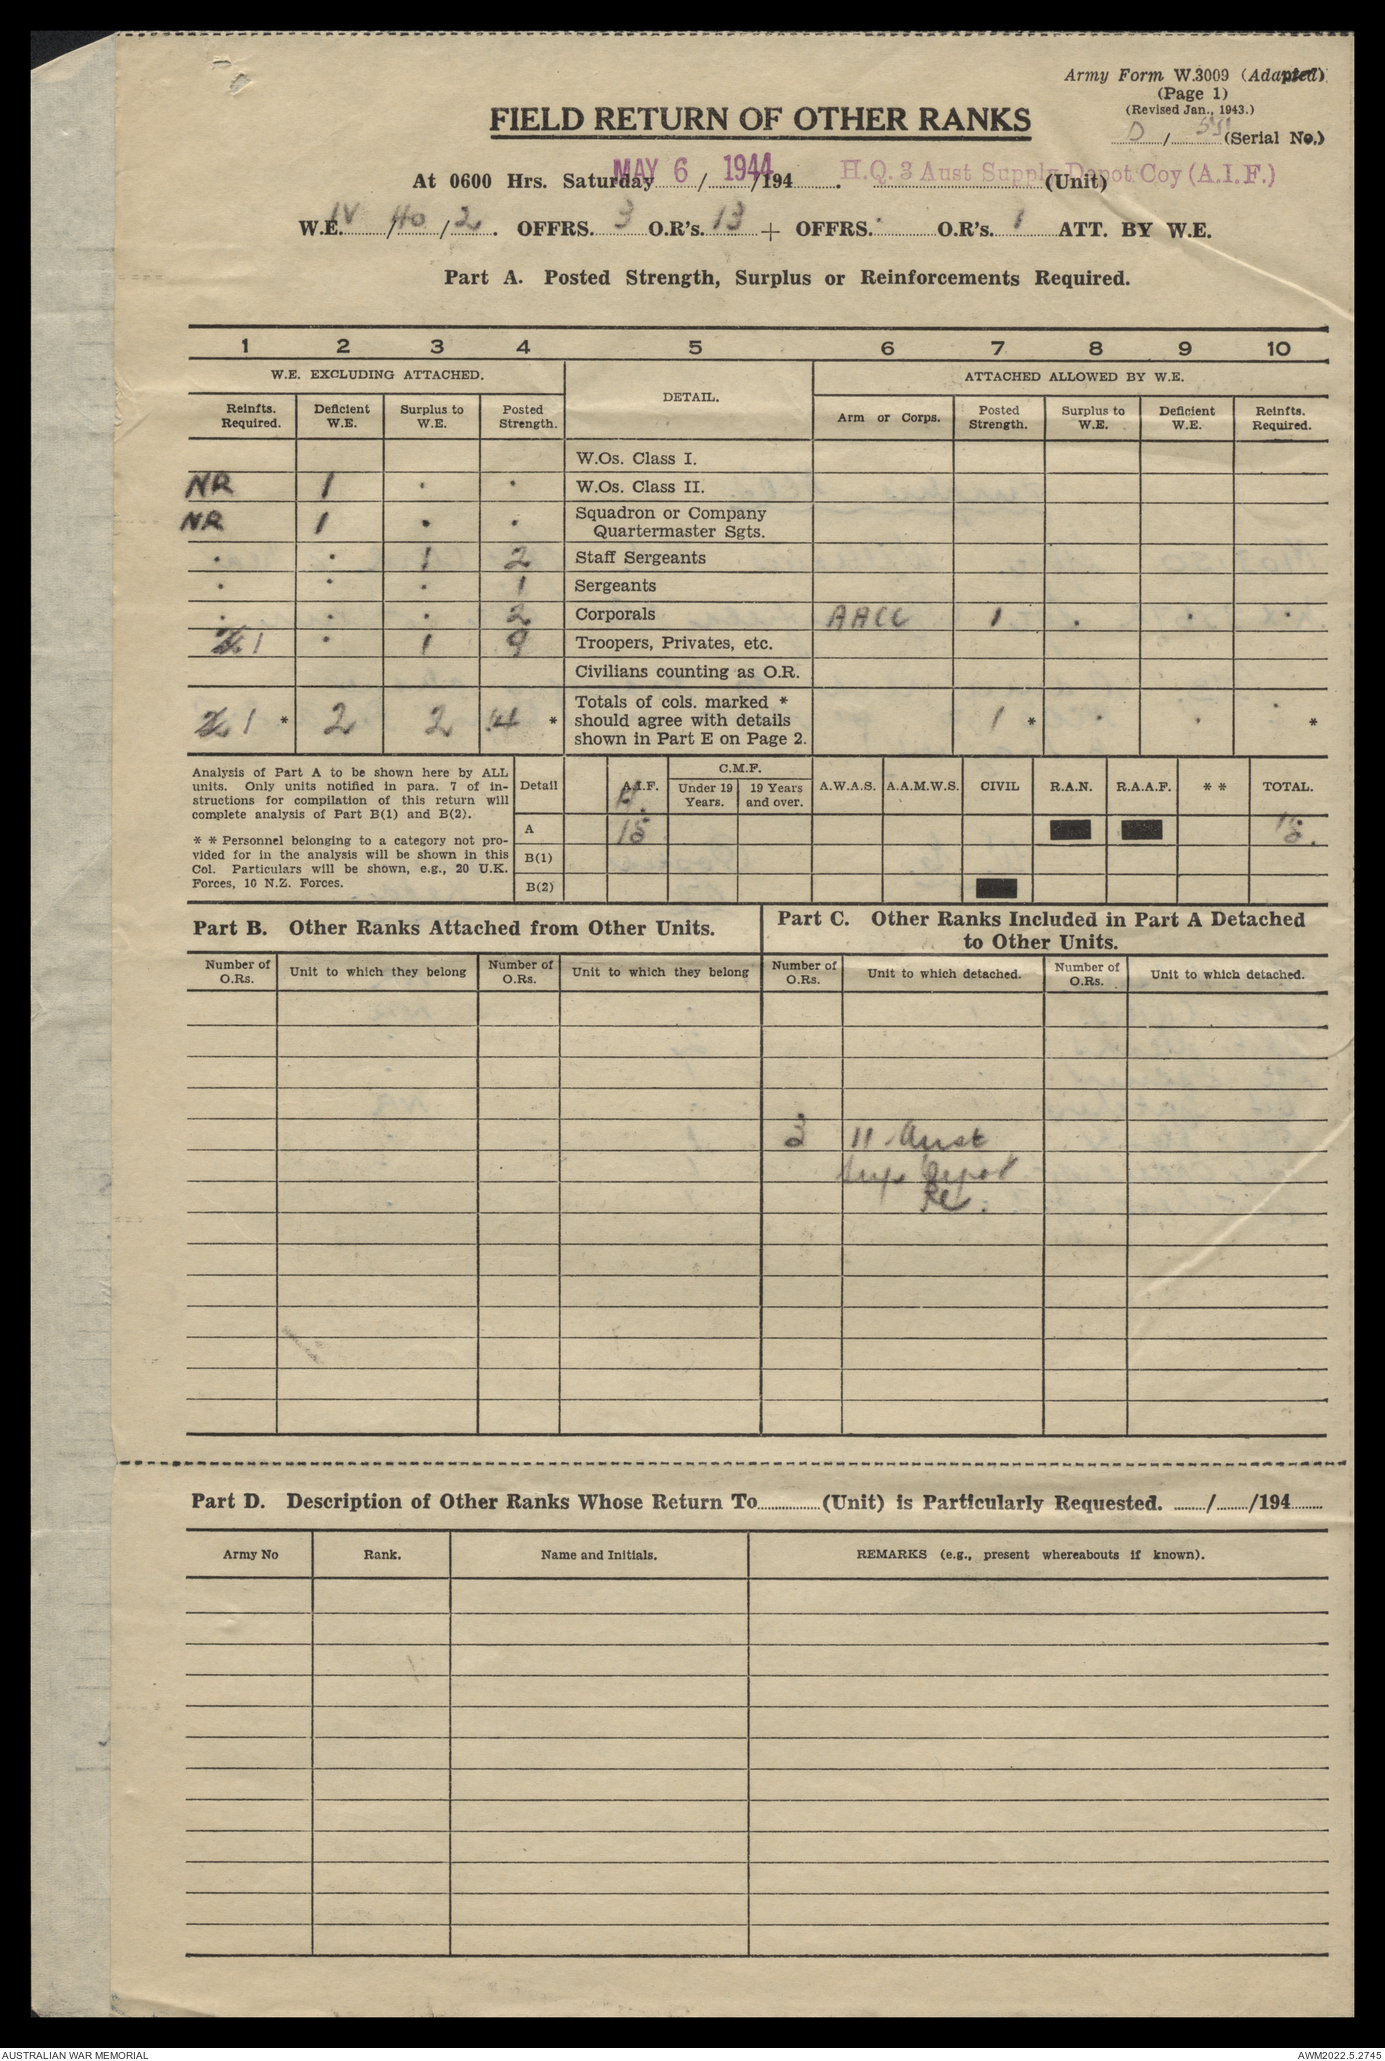 Army Form W.3009 (Adapted)
(Page 1)
(Revised Jan., 1943.)
FIELD RETURN OF OTHER RANKS
D / 551 (Serial No.)
At 0600 Hrs. Saturday MAY 6 / 1944 /194 . H.Q. 3 Aust Supply Depot Coy (A.I.F.) (Unit)
W.E. IV / 40 / 2 . OFFRS. 3 O.R's. 13 + OFFRS. . O.R's. 1 ATT. BY W.E.
Part A. Posted Strength, Surplus or Reinforcements Required.
1 2 3 4 5 6 7 8 9 10
W.E. EXCLUDING ATTACHED. DETAIL. ATTACHED ALLOWED BY W.E.
Reinfts. Required. Deficient W.E. Surplus to W.E. Posted Strength. Arm or Corps. Posted Strength. Surplus to W.E. Deficient W.E. Reinfts. Required.
W.Os. Class I.
NR 1 . . W.Os. Class II.
NR 1 . . Squadron or Company
Quartermaster Sgts.
. . 1 2 Staff Sergeants
. . . 1 Sergeants
. . . 2 Corporals AACC 1 . . .
1 . 1 9 Troopers, Privates, etc.
Civilians counting as O.R.
1 * 2 2 14 * Totals of cols. marked *
should agree with details
shown in Part E on Page 2. 1 * . . . *
Analysis of Part A to be shown here by ALL
units. Only units notified in para. 7 of in-
structions for compilation of this return will
complete analysis of Part B(1) and B(2).
* * Personnel belonging to a category not pro-
vided for in the analysis will be shown in this
Col. Particulars will be shown, e.g., 20 U.K.
Forces, 10 N.Z. Forces.
Detail A.I.F. C.M.F. Under 19 Years. 19 Years and over. A.W.A.S. A.A.M.W.S. CIVIL R.A.N. R.A.A.F. * * TOTAL.
A 15 15.
B(1)
B(2)
Part B. Other Ranks Attached from Other Units.
Number of O.Rs. Unit to which they belong Number of O.Rs. Unit to which they belong
Part C. Other Ranks Included in Part A Detached
to Other Units.
Number of O.Rs. Unit to which detached. Number of O.Rs. Unit to which detached.
3 11 Aust
Sup Depot
Pl.
Part D. Description of Other Ranks Whose Return To (Unit) is Particularly Requested. / /194
Army No Rank. Name and Initials. REMARKS (e.g., present whereabouts if known).
AUSTRALIAN WAR MEMORIAL AWM2022.5.2745